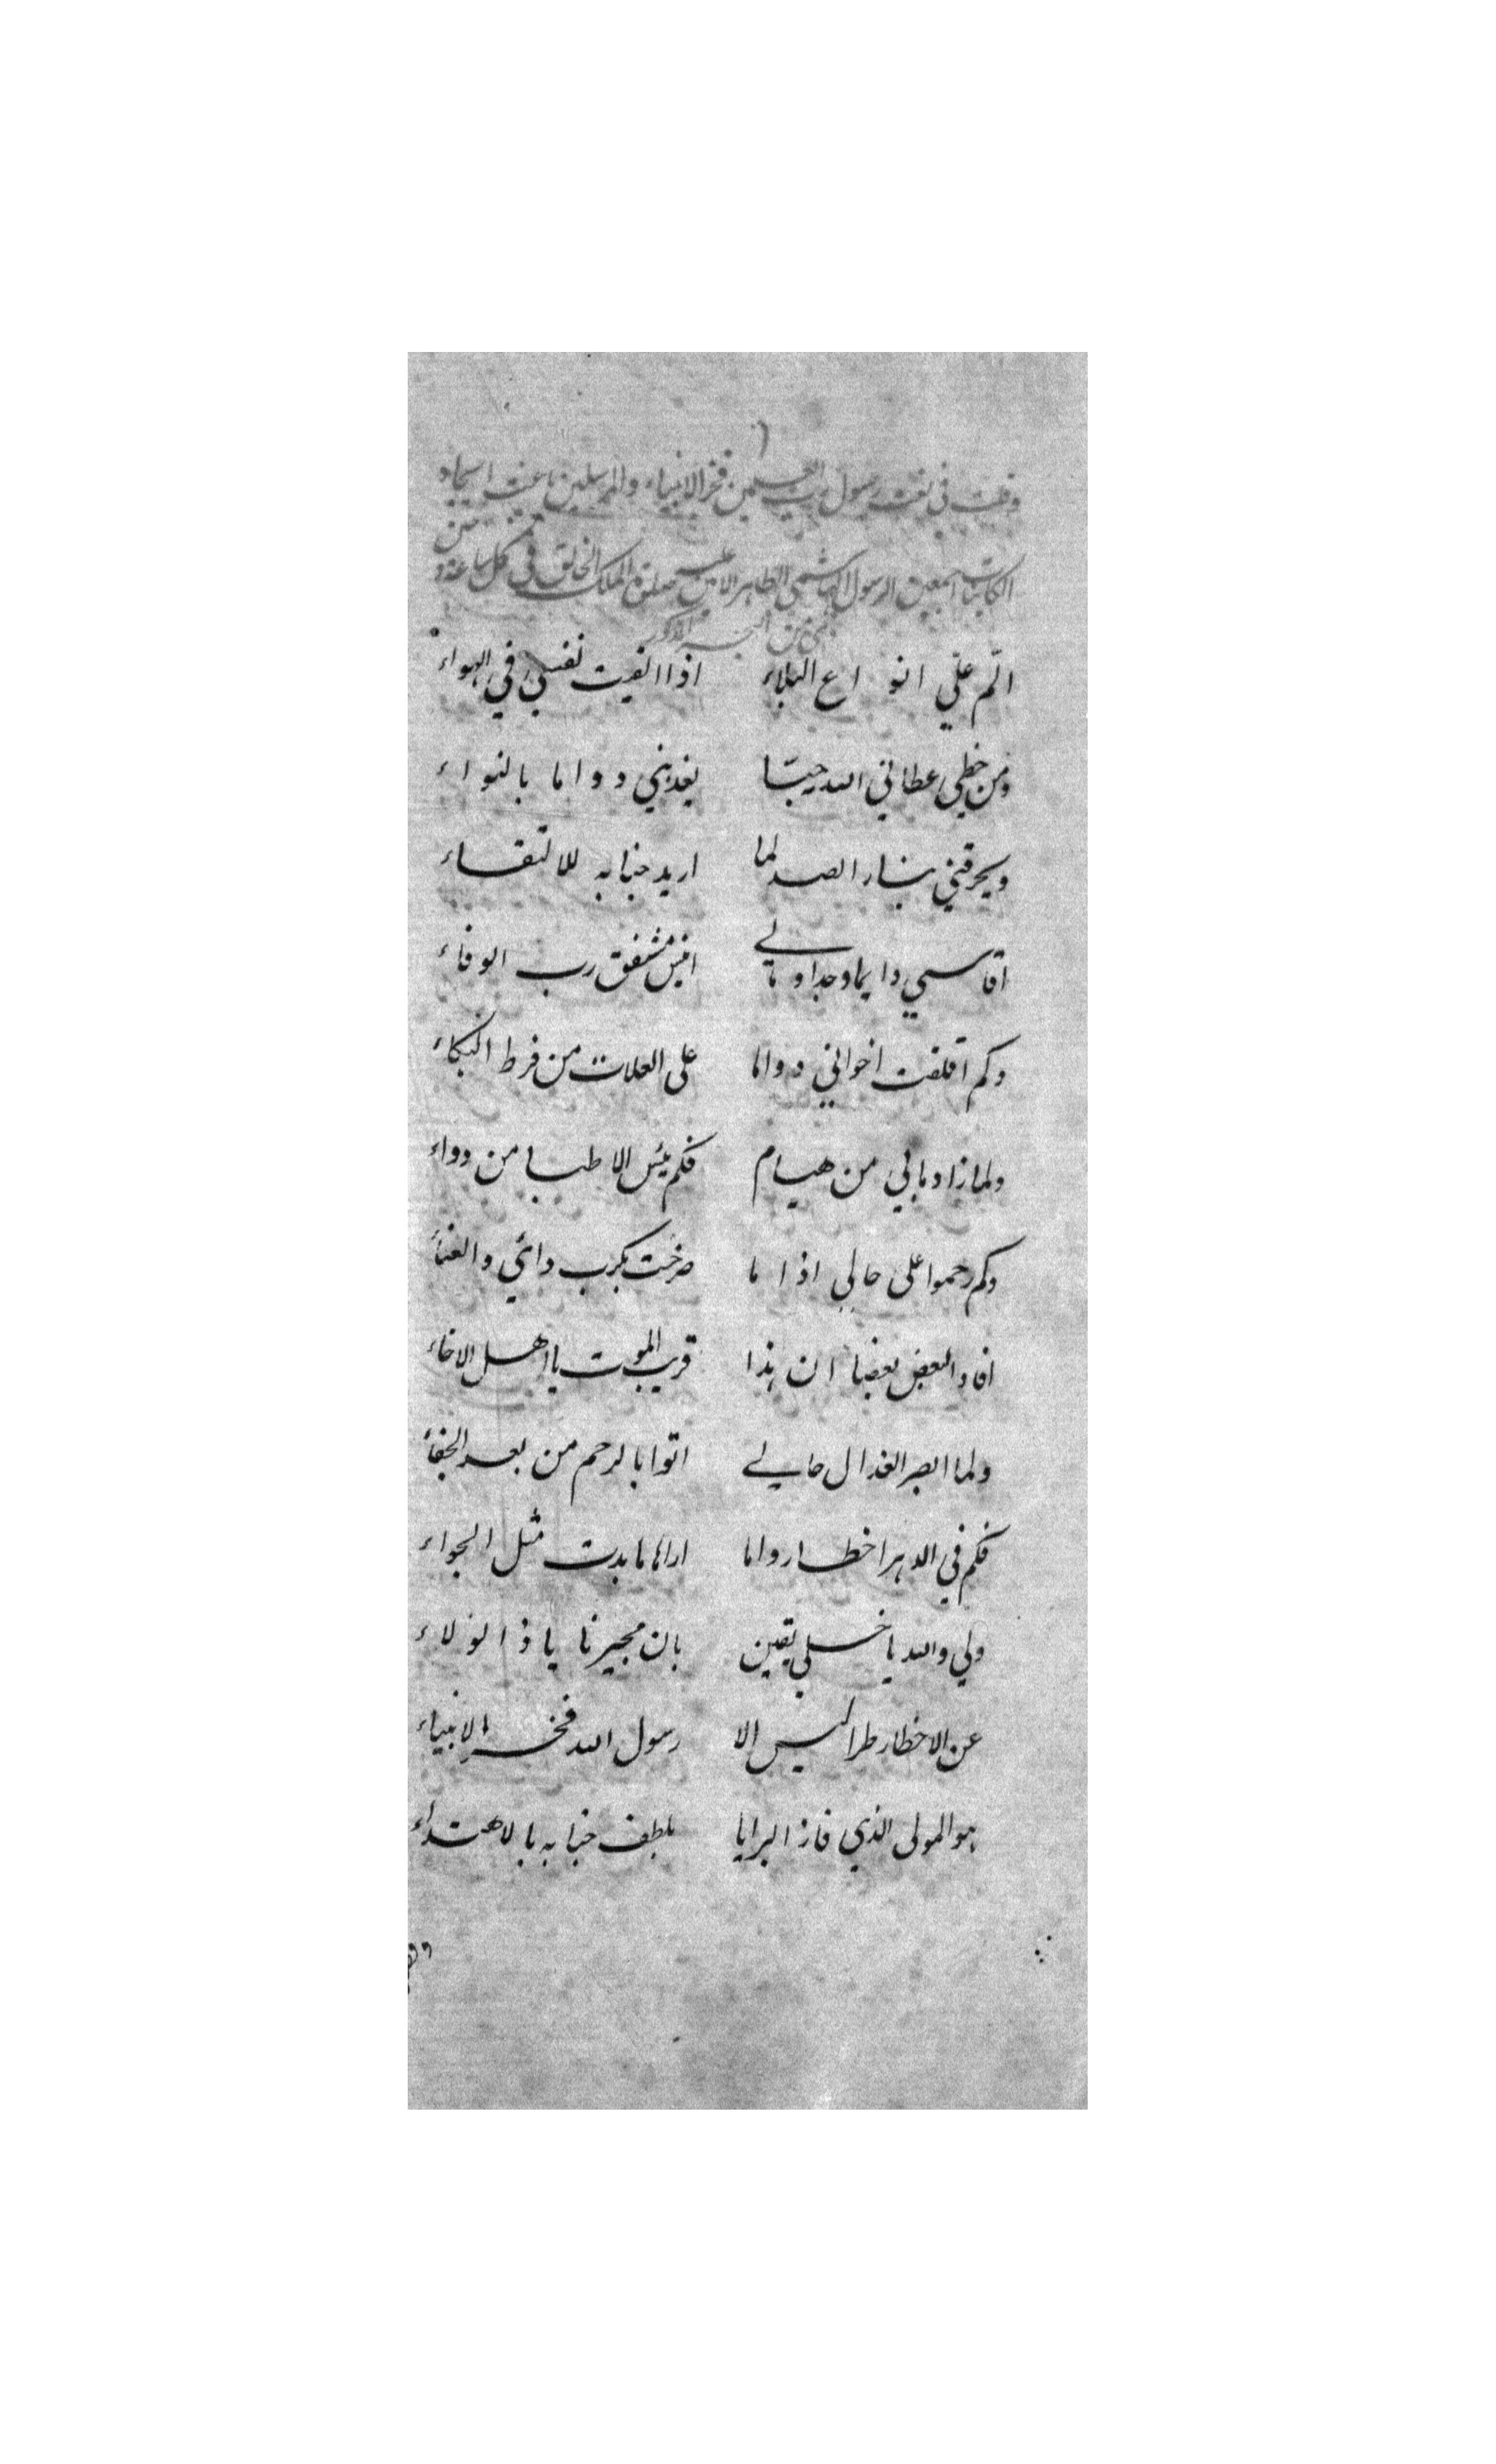 وقلت في نعت رسول رب العلمين فخر الانبياء والمرسلين باعث ايجاد
الكاينات اجمعين الرسول الهاشمي الطاهر الامين عليه صلوة الملك الخالق في كل ساعة و
الم علي انواع البلاء اذا القيت نفسي في الهواء
ومن حظي عطاني الله حبيبا يعذبني دواما بالنواء
ويحرقني بنار الصد لما اريد جنابه للالتقاء
اقاسي دايما وجدا ومالي انيس مشفق رب الوفاء
وكم اقلقت اخواني دواما على العلات من فرط البكاء
ولما زاد مابي من هيام فكم يئس الاطبا من دواء
وكم رحموا على حالي اذا ما صرخت بكرب دائي والعناء
افاد البعض بعضا ان هذا قريب الموت يا اهل الاخاء
ولما ابصر العذال حالي اتوا بالرحم من بعد الجفاء
فكم في الدهر اخطار واما اراها ما بدت مثل الجواء
ولي والله يا خلي يقين بان مجيرنا يا ذا الولاء
عن الاخطار طرا ليس الا رسول الله فخر الانبياء
هو المولى الذي فاز البرايا بلطف جنابه بالاهتداء